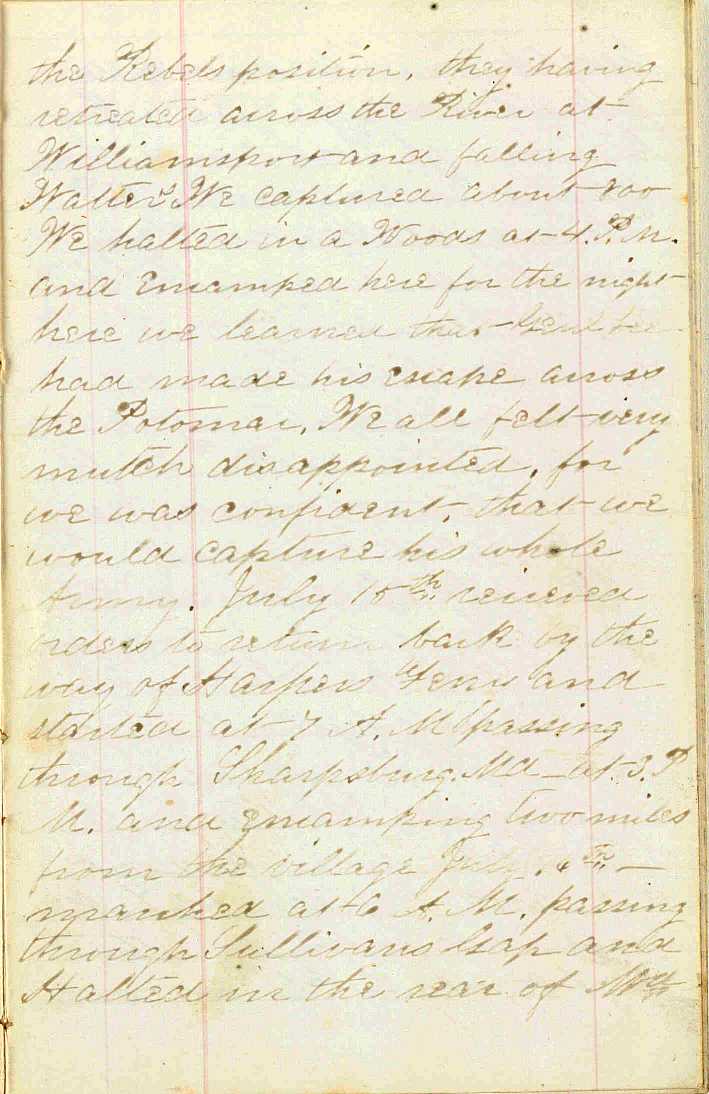 the Rebels position, they having
retreated across the River at
Williamsport and falling
Watters We captured about 800
We halted in a Woods at 4. P.M.
and Encamped here for the night
here we learned that Genl Lee
had made his escape across
the Potomac, We all felt very
mutch disappointed, for
we was confident, that we
would capture his whole
Army. July 15th. recieved
orders to return back by the
way of Harpers Ferry and
started at 7 A. M passing
through Sharpsburg. Md - at 3. P
M. and Encamping two miles
from the village July th. -
marched at 6 A. M. passing
through Sullivans Gap and
Halted in the rear of